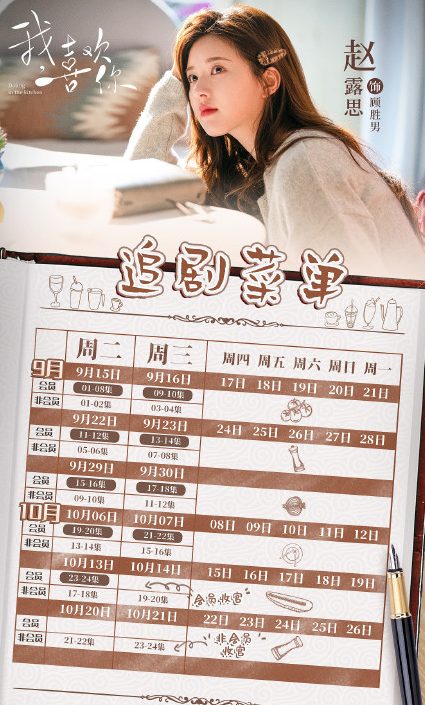 我喜欢你
Dating
in the kitchen
赵露思
饰
顾胜男
追剧菜单
周二 周三 周四 周五 周六 周日 周一
9月 9月15日 9月16日 17日 18日 19日 20日 21日
会员 01-08集 09-10集
非会员 01-02集 03-04集
9月22日 9月23日 24日 25日 26日 27日 28日
会员 11-12集 13-14集
非会员 05-06集 07-08集
9月29日 9月30日
会员 15-16集 17-18集
非会员 09-10集 11-12集
10月 10月06日 10月07日 08日 09日 10日 11日 12日
会员 19-20集 21-22集
非会员 13-14集 15-16集
10月13日 10月14日 15日 16日 17日 18日 19日
会员 23-24集
非会员 17-18集 19-20集 会员收官
10月20日 10月21日 22日 23日 24日 25日 26日
会员
非会员 21-22集 23-24集 非会员收官